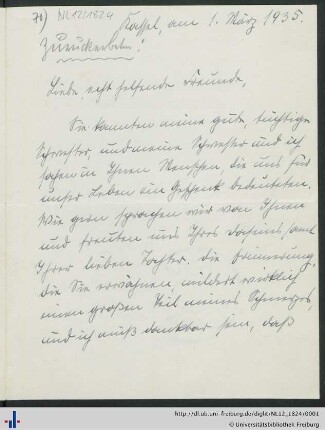 78) NL12/1824
Kassel, am 1. März 1935.
Zurückerbeten!
Liebe, echt helfende Freunde,
Sie kannten meine gute, tüchtige
Schwester, und meine Schwester und ich
sahen in Ihnen Menschen, die uns für
unser Leben ein Geschenk bedeuteten.
Wie gern sprachen wir von Ihnen
und freuten uns Ihres Daseins samt
Ihrer lieben Tochter. Die Erinnerung,
die Sie erwähnen, mildert wirklich
einen großen Teil meines Schmerzes,
und ich muß dankbar sein, daß
http://dl.ub.uni-freiburg.de/diglit/NL12_1824/0001
© Universitätsbibliothek Freiburg